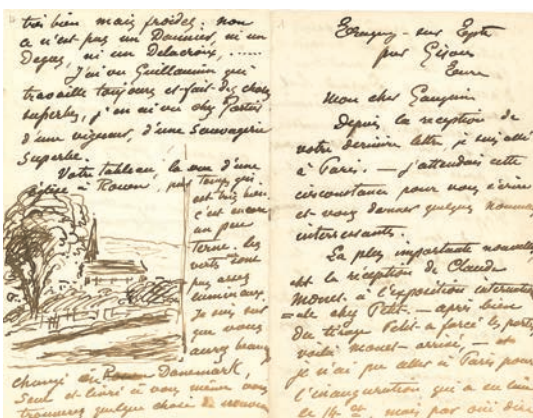 très bien mais froides. non
ce n'est pas un Daumier, ni un
Degas, ni un Delacroix, ......
J'ai vu Guillaumin qui
travaille toujours et fait des choses
superbes, j'en ai vu chez Portier
d'une vigueur, d'une sauvagerie
superbe.
Votre tableau, la vue d'une
église à Rouen, par temps gris
est très bien.
c'est encore
un peu
terne. les
verts sont
pas assez
lumineux.
Je suis sûr
que vous
aurez
changé en Rouen Danemark,
seul et livré à vous même vous
trouverez quelque chose de nouveau
Eragny-sur Epte
par Gisors
Eure
Mon cher Gauguin
Depuis la réception de
votre dernière lettre, je suis allé
à Paris. — j'attendais cette
circonstance pour vous écrire
et vous donner quelques nouvelles
intéressantes.
La plus importante nouvelle
est la réception de Claude
Monet à l'exposition internatio
=ale chez Petit. — après bien
du tirage Petit a forcé les portes
voilà Monet arrivé, — et
je n'ai pu aller à Paris pour
l'inauguration qui a eu lieu
le 14 ct, mais par ouï dire